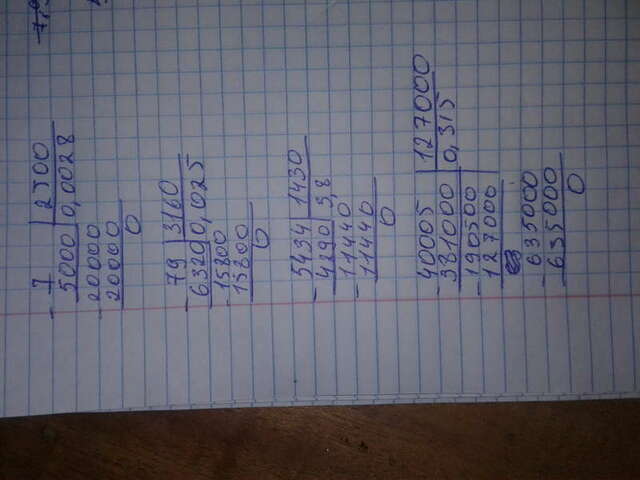 7 2500
5000 0,0028
20000
20000
0
79 3160
6320 0,025
15800
15800
0
5434 1430
4290 3,8
11440
11440
0
40005 127000
381000 0,315
190500
127000
635000
635000
0